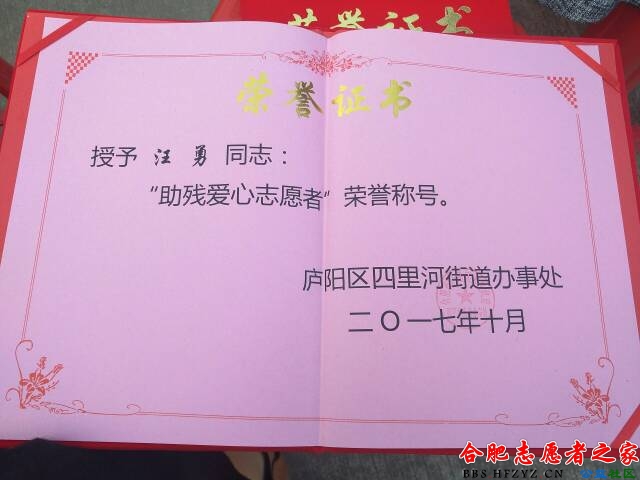 荣誉证书
荣誉证书
授予 汪勇 同志：
“助残爱心志愿者”荣誉称号。
庐阳区四里河街道办事处
二〇一七年十月
合肥志愿者之家
BBS HFZYZ CN